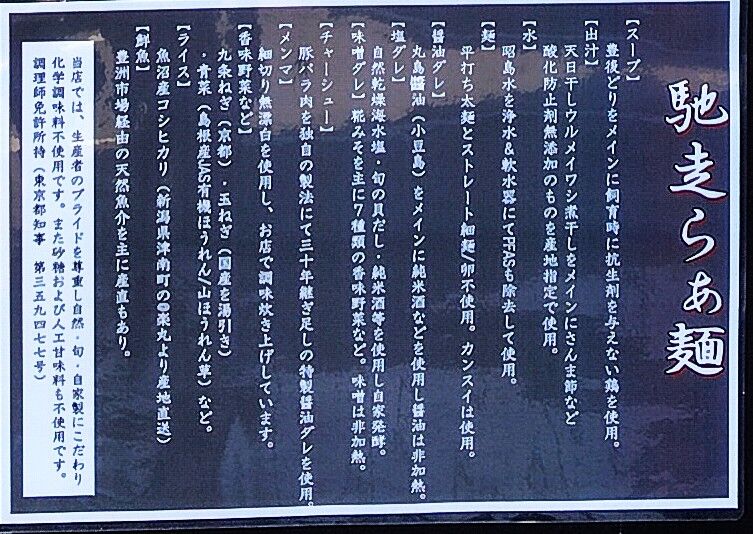 馳走らぁ麺
【スープ】
豊後どりをメインに飼育時に抗生剤を与えない鶏を使用。
【出汁】
天日干しウルメイワシ煮干しをメインにさんま節など
酸化防止剤無添加のものを産地指定で使用。
【水】
昭島水を浄水&軟水器にてPFASも除去して使用。
【麺】
平打ち太麺とストレート細麺/卵不使用。カンスイは使用。
【醤油ダレ】
丸島醤油(小豆島)をメインに純米酒などを使用し醤油は非加熱。
【塩ダレ】
自然乾燥海水塩・旬の貝だし・純米酒等を使用し自家発酵。
【味噌ダレ】糀みそを主に7種類の香味野菜など。味噌は非加熱。
【チャーシュー】
豚バラ肉を独自の製法にて三十年継ぎ足しの特製醤油ダレを使用。
【メンマ】
細切り無漂白を使用し、お店で調味炊き上げしています。
【香味野菜など】
九条ねぎ(京都)・玉ねぎ(国産を湯引き)
・青菜(島根産JAS有機ほうれん/山ほうれん草)など。
【ライス】
魚沼産コシヒカリ(新潟県津南町の
楽丸より産地直送)
【鮮魚】
豊洲市場経由の天然魚介を主に産直もあり。
当店では、生産者のプライドを尊重し自然・旬・自家製にこだわり
化学調味料不使用です。また砂糖および人工甘味料も不使用です。
調理師免許所持(東京都知事 第三五九四七七号)